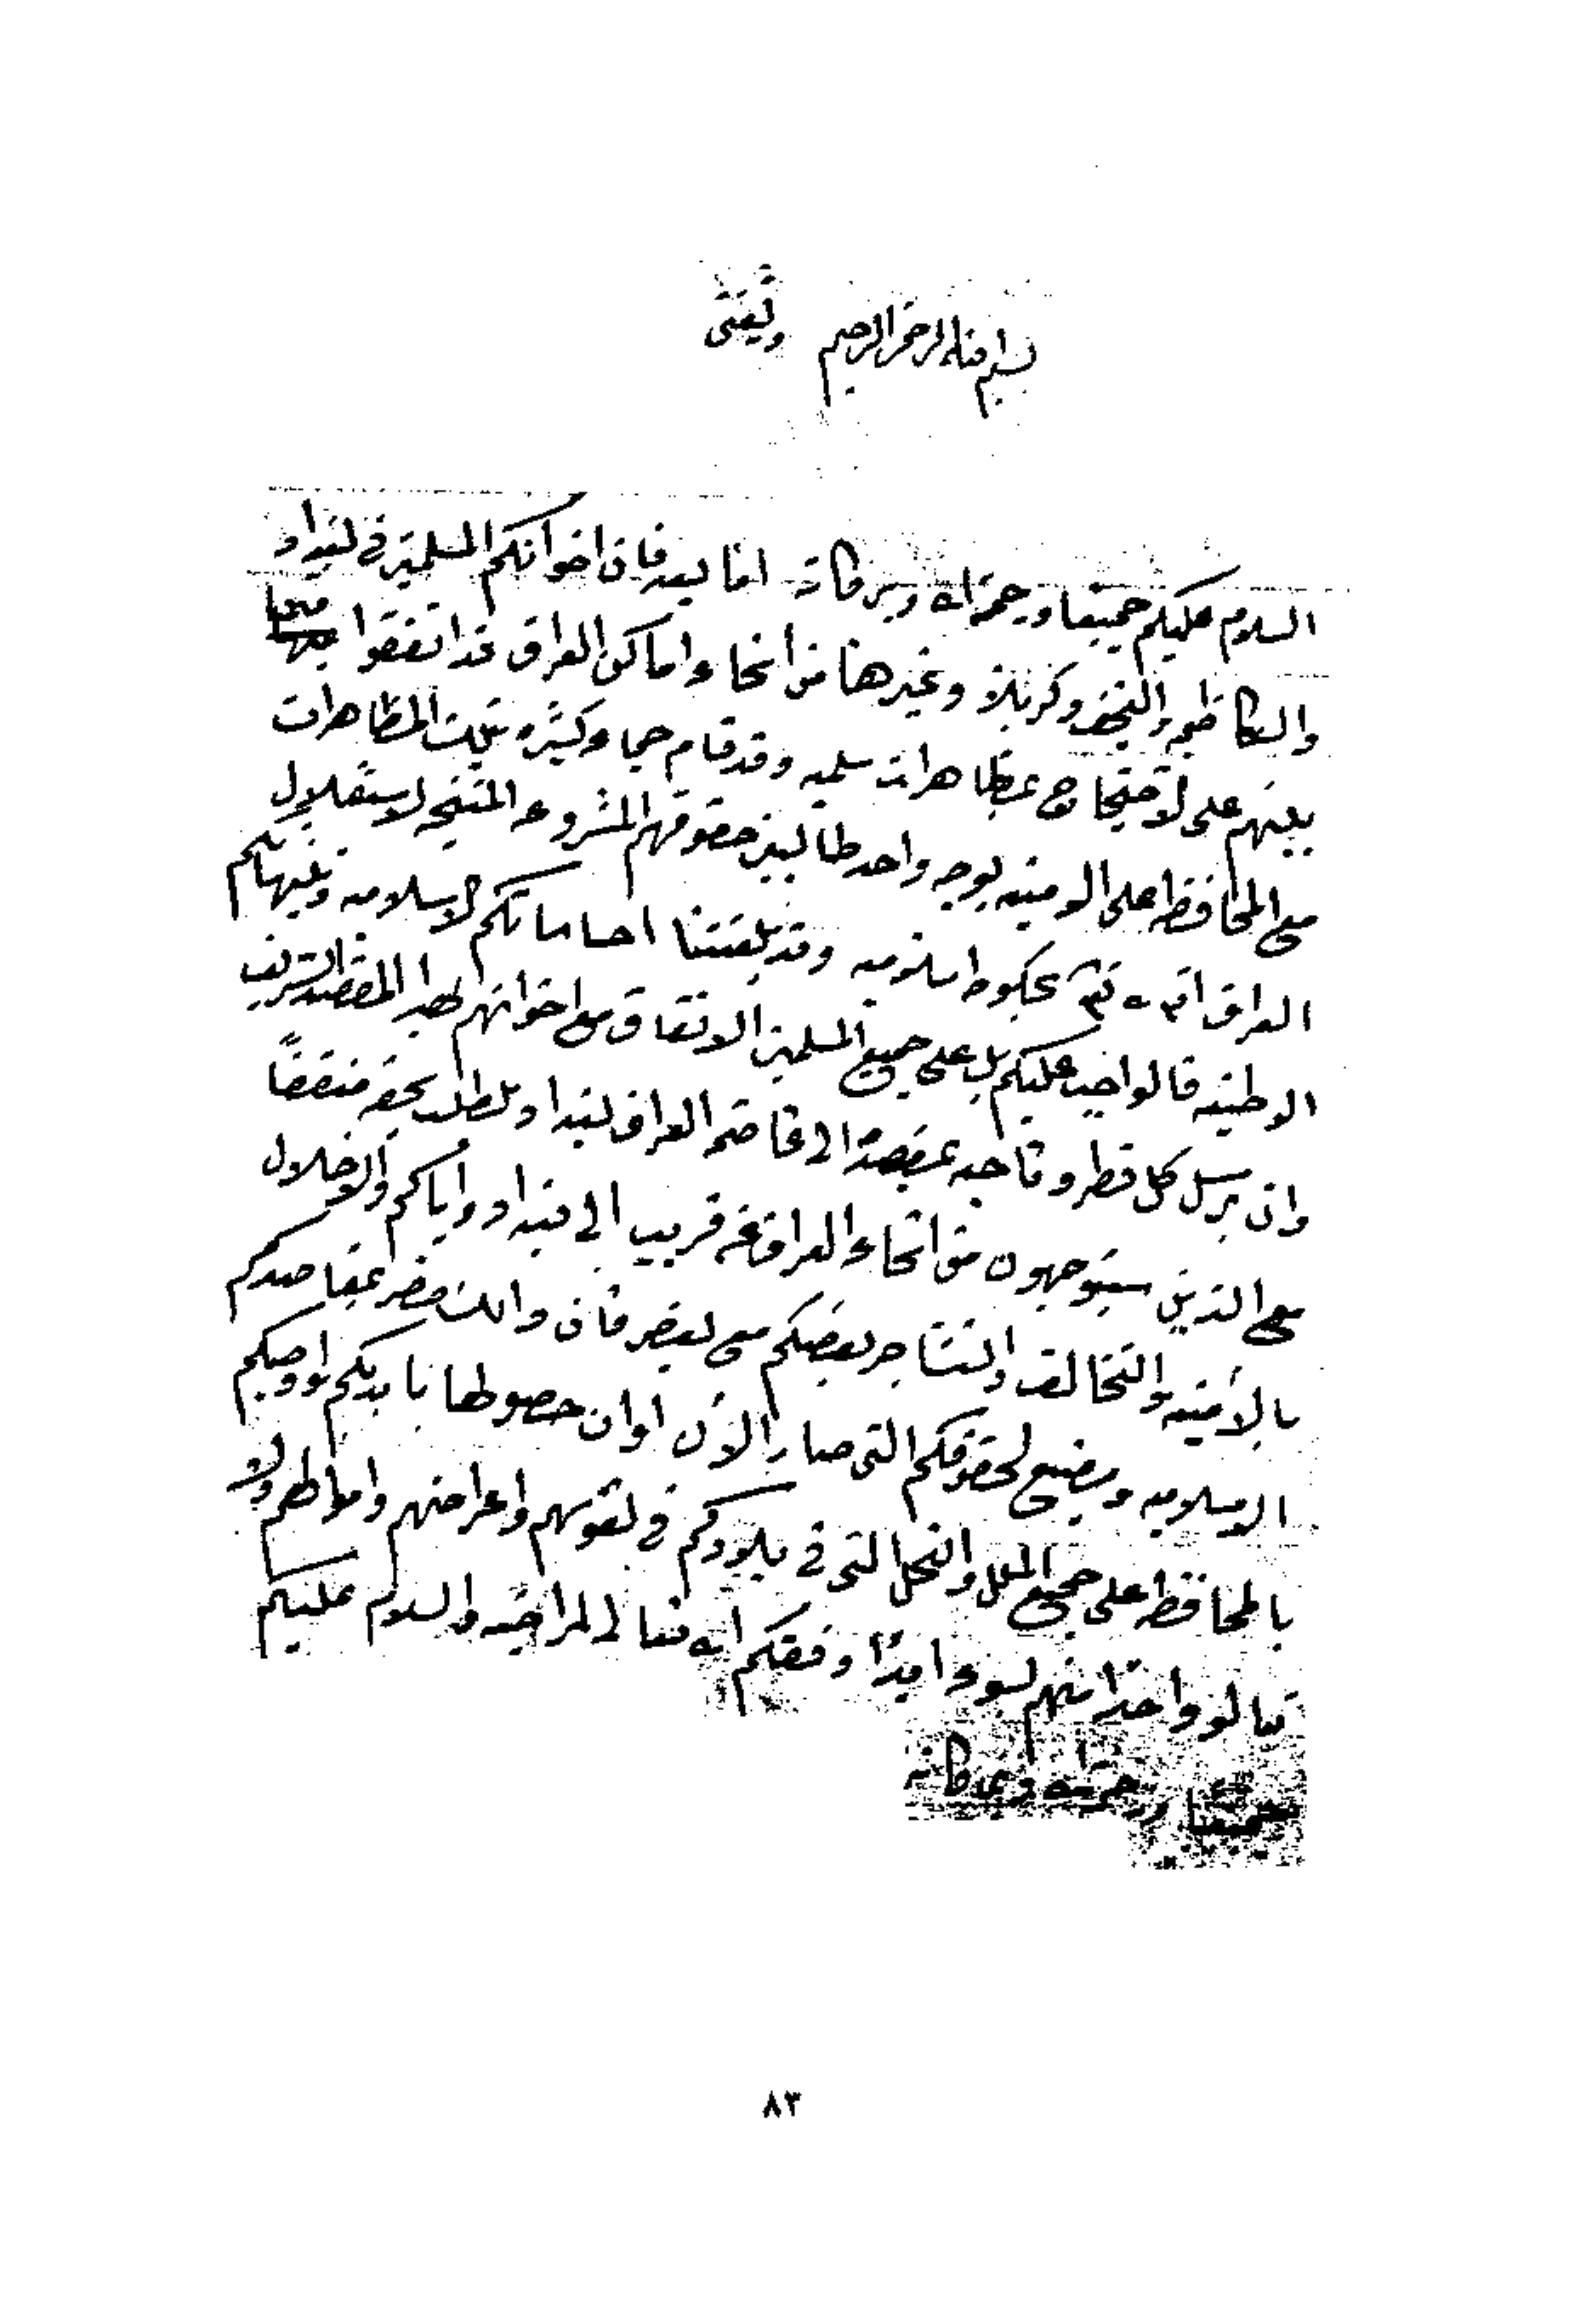 بسم الله الرحمن الرحيم وبه ثقتي
السلام عليكم جميعا ورحمة الله وبركاته اما بعد فان اخوانكم المسلمين في بغداد
والكاظمية والنجف وكربلا وغيرها من انحاء واماكن العراق قد اتفقوا فيما
بينهم على الاحتجاج بمظاهرات سلمية وقد قام جماعة كثيرة بتلك المظاهرات
مع المحافظة على الامنية بوجه واحد طالبين حقوقهم المشروعة المنتجة لاستقلال
العراق انشاء الله بحكومة اسلامية وقد بلغتنا احساساتكم الاسلامية وتنبهاتكم
الوطنية فالواجب عليكم بل على جميع المسلمين الاتفاق مع اخوانهم لهذا المقصد الشريف
وان يرسل كل قطر وناحية مقصدا الى عاصمة العراق بغداد للطلب بحقه متفقا
مع الذين سيتوجهون من انحاء العراق عن قريب الى بغداد واياكم والاخلال
بالامنية والتخالف والتشاجر بعضكم مع بعض فان ذلك مضر بمقاصدكم
الاسلامية ومضيع لحقوقكم التي صار الان اوان حصولها بايديكم واوصيكم
بالمحافظة على جميع الملل والنحل التي في بلادكم في نفوسهم واعراضهم واموالهم ولا
تنالوا واحدا منهم بسوء ابدا وفقكم الله تعالى لمراضيه والسلام عليكم
جميعا ورحمة الله وبركاته
٨٣